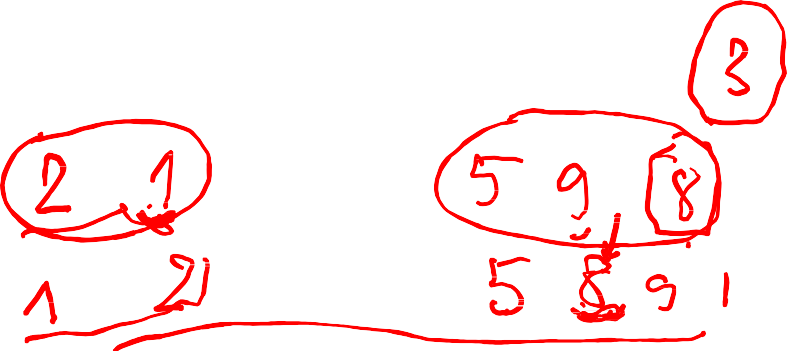 3
2 1 5 9 8
1 2 5 8 9